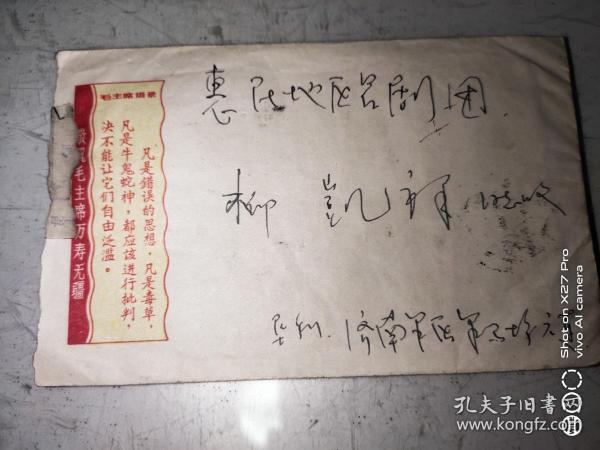 毛主席语录
凡是错误的思想,凡是毒草,
凡是牛鬼蛇神,都应该进行批判,
决不能让它们自由泛滥。
毛主席万寿无疆
惠民地区吕剧团
柳凯祥
济南军区军马场
Shot on X27 Pro
vivo AI camera
孔夫子旧书网
www.kongfz.com